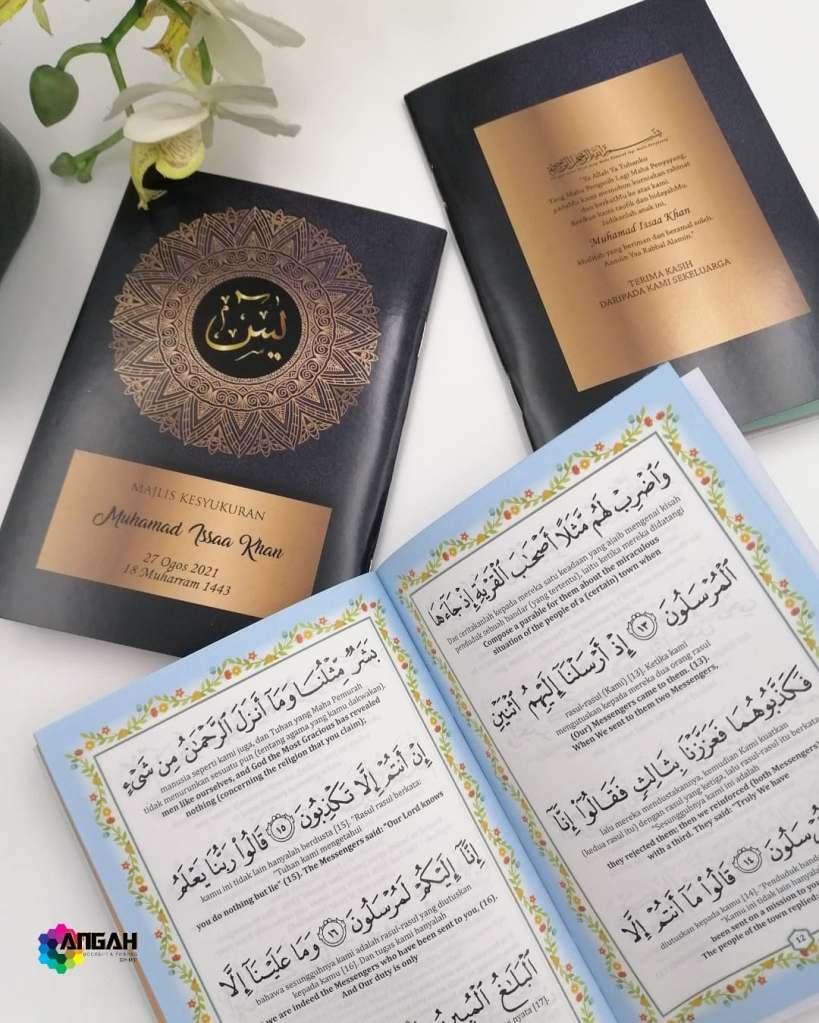 يس
MAJLIS KESYUKURAN
Muhamad Issaa Khan
27 Ogos 2021
18 Muharram 1443
"Ya Allah Ya Tuhanku
Yang Maha Pengasih Lagi Maha Penyayang,
padaMu kami memohon kurniakan rahmat
dan berkatMu ke atas kami.
Berikan kami taufik dan hidayahMu
Jadikanlah anak ini,
Muhamad Issaa Khan
khalifah yang beriman dan beramal soleh.
Aamiin Yaa Rabbal Alamin."
TERIMA KASIH
DARIPADA KAMI SEKELUARGA
وَٱضْرِبْ لَهُم مَّثَلًا أَصْحَٰبَ ٱلْقَرْيَةِ إِذْ جَآءَهَا
Dan ceritakanlah kepada mereka satu keadaan yang ajaib mengenai kisah
penduduk sebuah bandar (yang tertentu), iaitu ketika mereka didatangi
Compose a parable for them about the miraculous
situation of the people of a (certain) town when
ٱلْمُرْسَلُونَ ١٣ إِذْ أَرْسَلْنَآ إِلَيْهِمُ ٱثْنَيْنِ
rasul-rasul (Kami) [13]. Ketika kami
mengutuskan kepada mereka dua orang rasul
(Our) Messengers came to them. (13).
When We sent to them two Messengers,
فَكَذَّبُوهُمَا فَعَزَّزْنَا بِثَالِثٍ فَقَالُوٓا۟ إِنَّآ
lalu mereka mendustakannya, kemudian Kami kuatkan
(kedua rasul itu) dengan rasul yang ketiga, lalu rasul-rasul itu berkata:
"Sesungguhnya kami ini adalah
they rejected them: then we reinforced (both Messengers)
with a third. They said: "Truly We have
١٤ قَالُوا۟ مَآ أَنتُمْ إِلَّا
diutuskan kepada kamu [14]. "Penduduk bandar
"Kamu ini tidak lain hanyalah
been sent on a mission to you
The people of the town replied:
12
بَشَرٌ مِّثْلُنَا وَمَآ أَنزَلَ ٱلرَّحْمَٰنُ مِن شَىْءٍ
manusia seperti kami juga, dan Tuhan yang Maha Pemurah
tidak menurunkan sesuatu pun (tentang agama yang kamu dakwakan).
men like ourselves, and God the Most Gracious has revealed
nothing (concerning the religion that you claim);
إِنْ أَنتُمْ إِلَّا تَكْذِبُونَ ١٥ قَالُوا۟ رَبُّنَا يَعْلَمُ
kamu ini tidak lain hanyalah berdusta [15]. "Rasul rasul berkata:
"Tuhan kami mengetahui
you do nothing but lie" (15). The Messengers said: "Our Lord knows
إِنَّآ إِلَيْكُمْ لَمُرْسَلُونَ ١٦ وَمَا عَلَيْنَآ إِلَّا
bahawa sesungguhnya kami adalah rasul-rasul yang diutuskan
kepada kamu [16]. Dan tugas kami hanyalah
we are indeed the Messengers who have been sent to you, (16).
And Our duty is only
ٱلْبَلَٰغُ ٱلْمُبِينُ
nyata [17].
ANGAH